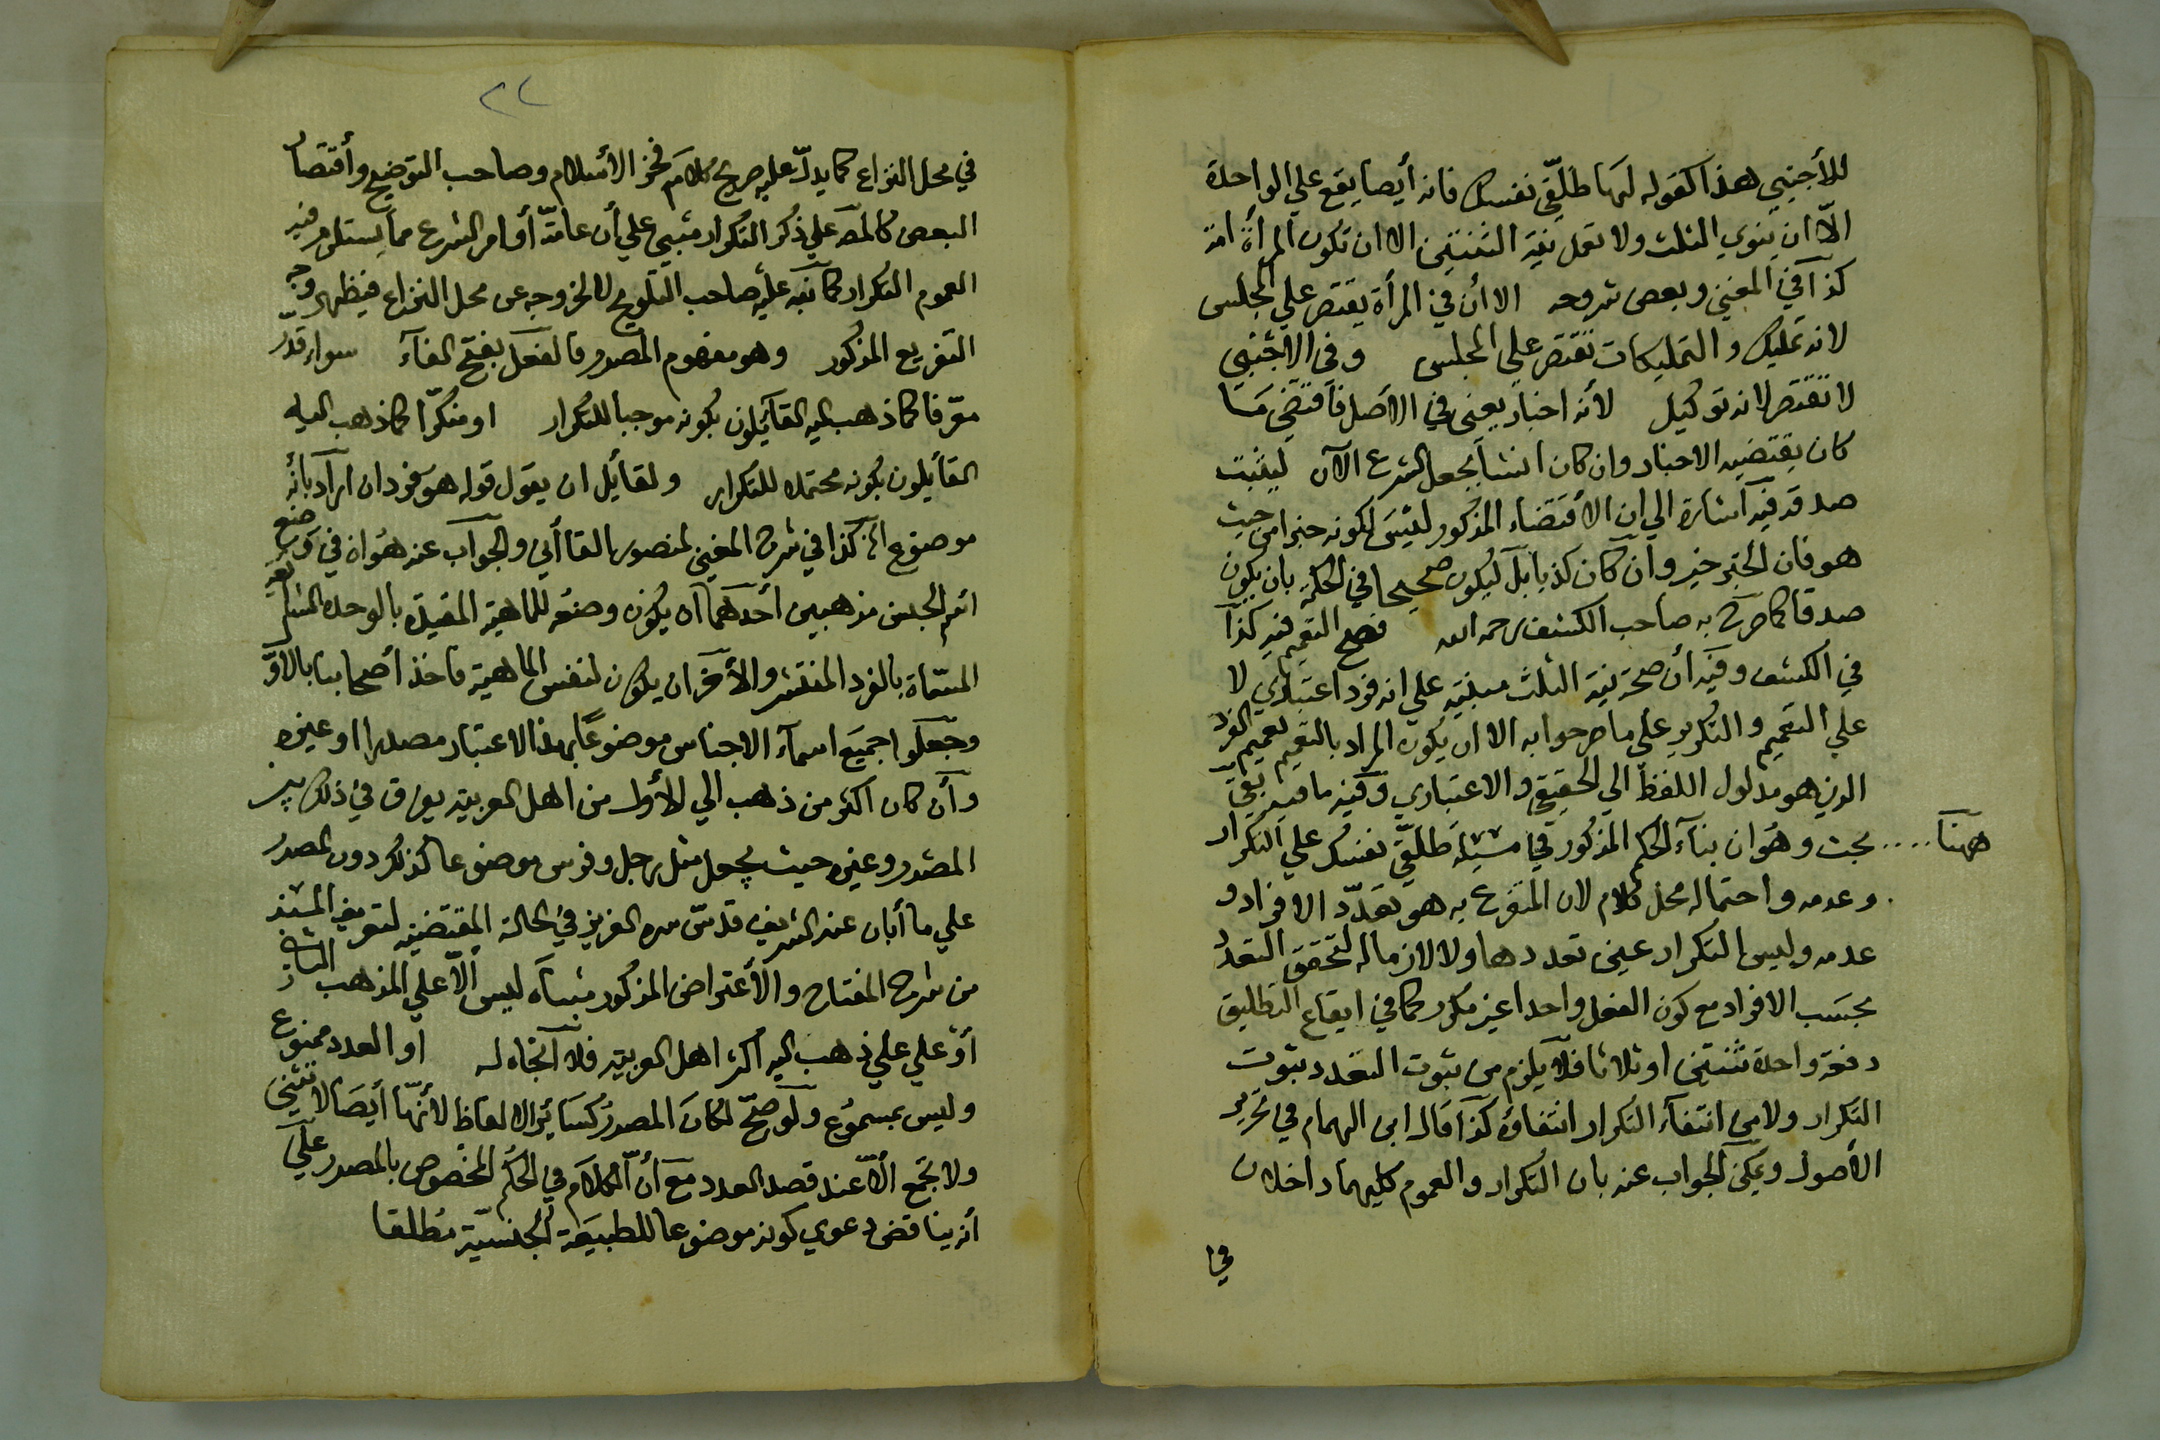 للأجنبي هذا كقوله لها طلقي نفسك فانه أيضا يقع علي الواحدة
الا ان ينوي الثلث ولا تعمل نية الثنتين الا ان تكون المرأة امة
كذا في المغني وبعض شروحه الا أن في المرأة يقتصر علي المجلس
لانه تمليك والتمليكات تقتصر علي المجلس وفي الأجنبي
لا تقتصر لانه توكيل لأنه اخبار يعني في الأصل فاقتضي ما
كان يقتضيه الاخبار وان كان انشا بجعل الشرع الآن ليثبت
صدقه فيه اشارة الي ان الاقتضاء المذكور ليس لكونه خبرا من حيث
هو فان الخبر خبر وان كان كذبا بل ليكون صحيحا في الحكمة بان يكون
صدقا كما صرح به صاحب الكشف رحمه الله فصح التعميم فيه كذا
في الكشف وفيه أن صحة نية الثلث مبنية علي انه فرد اعتباري لا
علي التعميم والتكرير علي ما صرحوا به الا ان يكون المراد بالتعميم تعميم الفرد
الذي هو مدلول اللفظ الي الحقيقي والاعتباري وفيه ما فيه بقي
ههنا .... بحث وهو ان بناء الحكم المذكور في مسئلة طلقي نفسك علي التكرار
وعدمه واحتماله محل كلام لان المتفرع به هو تعدد الافراد و
عدمه وليس التكرار عين تعددها ولا لازما له لتحقق التعدد
بحسب الافراد مع كون الفعل واحدا غير مكرر كما في ايقاع التطليق
دفعة واحدة ثنتين او ثلاثا فلا يلزم من ثبوت التعدد ثبوت
التكرار ولا من انتفاء التكرار انتفاؤه كذا قال ابن الهمام في تحرير
الأصول ويمكن الجواب عنه بان التكرار والعموم كليهما داخلان
في
٢٢
في محل النزاع كما يدل عليه صريح كلام فخر الاسلام وصاحب التوضيح وأقتصار
البعض كالمص علي ذكر التكرار مبني علي أن عامة أوامر الشرع مما يستلزم فيه
العموم التكرار كما نبه عليه صاحب التلويح لا لخروجه عن محل النزاع فيظهر وجه
التفريع المذكور وهو مفهوم المصدر فالفعل بفتح الفاء سواء قدر
معرفا كما ذهب اليه القائلون بكونه موجبا للتكرار او منكرا كما ذهب اليه
القائلون بكونه محتملا للتكرار ولقائل ان يقول قوله هو فرد ان اراد بانه
موضوع الخ كذا في شرح المغني لمنصور القاآني والجواب عنه هو ان في وضع
اسم الجنس مذهبين أحدهما ان يكون وضعه للماهية المقيدة بالوحدة
المسماة بالفرد المنتشر والأخر ان يكون لنفس الماهية فاخذ أصحابنا بالاول
وجعلوا جميع اسماء الاجناس موضوعا بهذا الاعتبار مصدرا او غيره
وأن كان اكثر من ذهب الي الأول من اهل العربية يفرق في ذلك بين
المصدر وغيره حيث يجعل مثل رجل وفرس موضوعا كذلك دون المصدر
علي ما أبان عنه الشريف قدس سره العزيز في الحالة المقتضية لتعريف المسند
من شرح المفتاح والأعتراض المذكور مبناه ليس الا علي المذهب الثاني
أو علي علي ذهب اليه اكثر اهل العربية فلا اتجاه له او العدد ممنوع
وليس بمسموع ولو صح لكان المصدر كسائر الالفاظ لأنها أيضا لا تثني
ولا تجمع الا عند قصد العدد مع أن الكلام في الحكم المخصوص بالمصدر علي
أنه يناقض دعوي كونه موضوعا للطبيعة الجنسية مطلقا